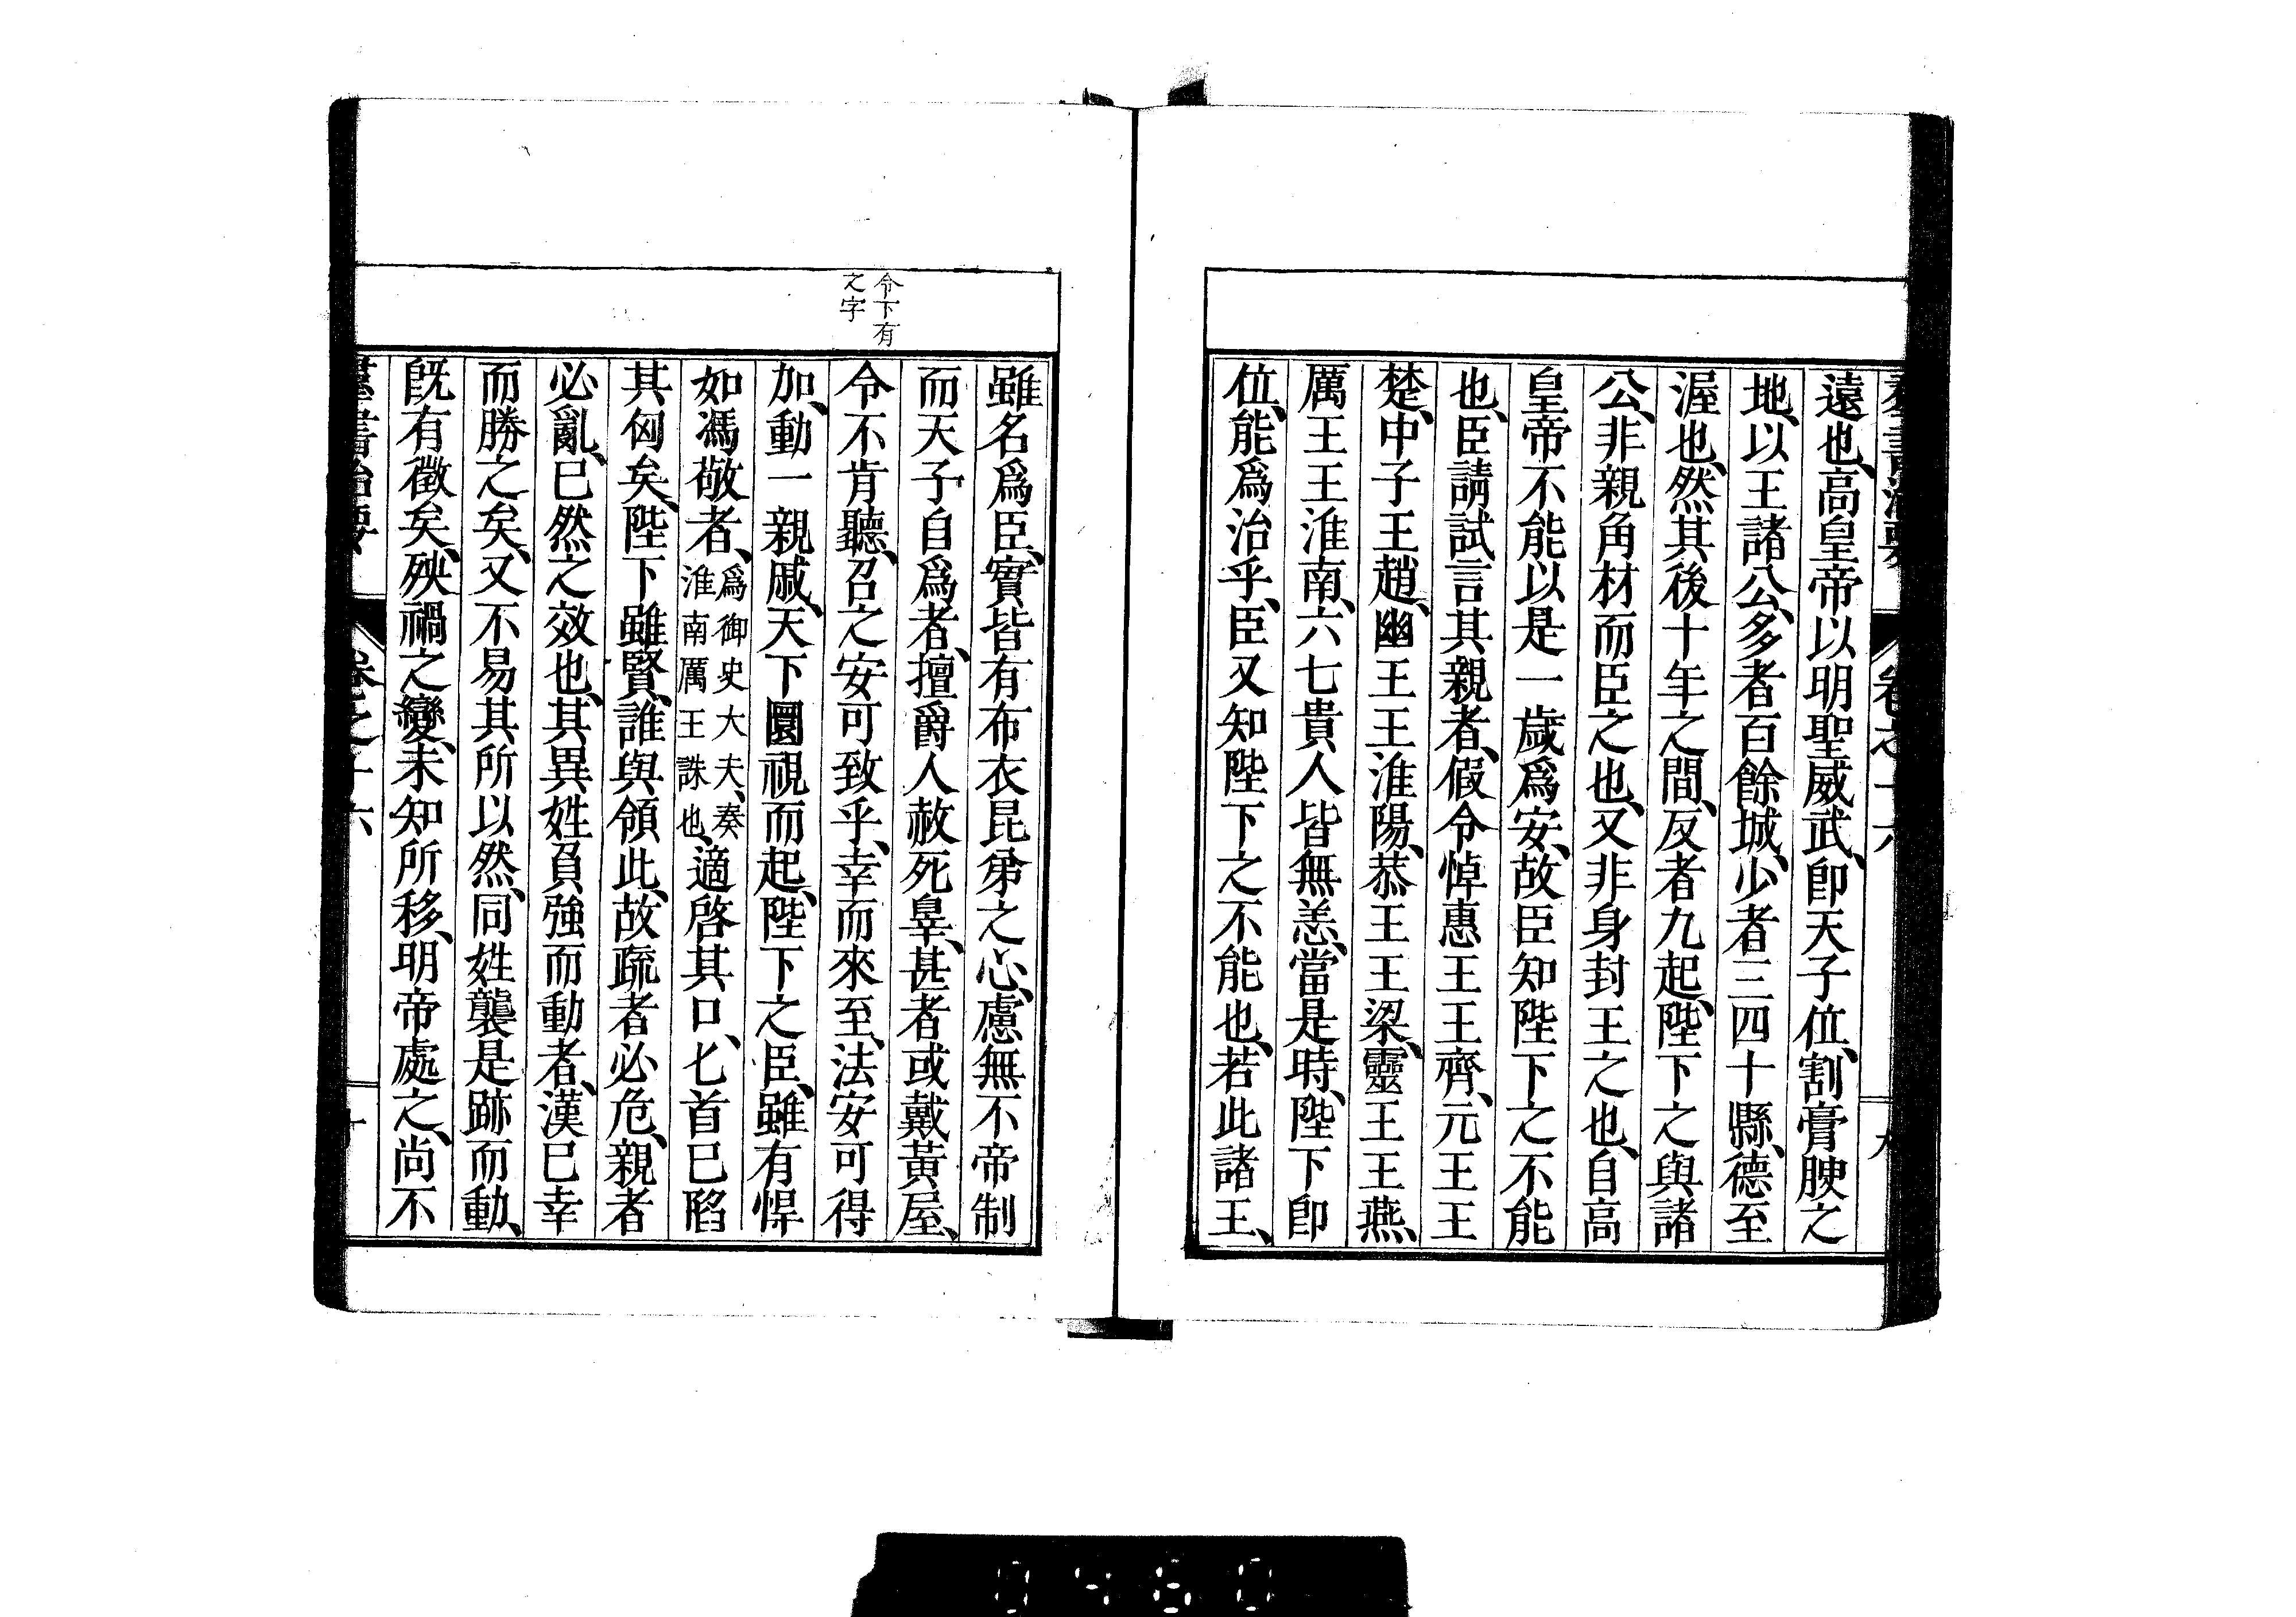 羣書治要 卷之十六 九
遠也、高皇帝以明聖威武、卽天子位、割膏腴之
地、以王諸公、多者百餘城、少者三四十縣、德至
渥也、然其後十年之間、反者九起、陛下之與諸
公、非親角材而臣之也、又非身封王之也、自高
皇帝不能以是一歲爲安、故臣知陛下之不能
也、臣請試言其親者、假令悼惠王王齊、元王王
楚、中子王趙、幽王王淮陽、恭王王梁、靈王王燕、
厲王王淮南、六七貴人皆無恙、當是時、陛下卽
位、能爲治乎、臣又知陛下之不能也、若此諸王、
令下有
之字
雖名爲臣、實皆有布衣昆弟之心、慮無不帝制
而天子自爲者、擅爵人赦死辠、甚者或戴黃屋、
令不肯聽、召之安可致乎、幸而來至、法安可得
加、動一親戚、天下圜視而起、陛下之臣、雖有悍
如馮敬者、爲御史大夫、奏淮南厲王誅也、適啓其口、匕首已陷
其匈矣、陛下雖賢、誰與領此、故疏者必危、親者
必亂、已然之效也、其異姓負強而動者、漢已幸
而勝之矣、又不易其所以然、同姓襲是跡而動、
旣有徵矣、殃禍之變、未知所移、明帝處之、尚不
羣書治要 卷之十六